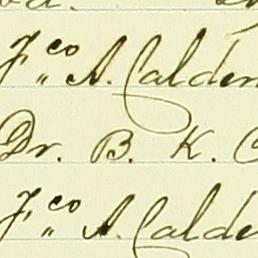 Fco A. Calder
Dr. B. K. C
Fco A. Calde